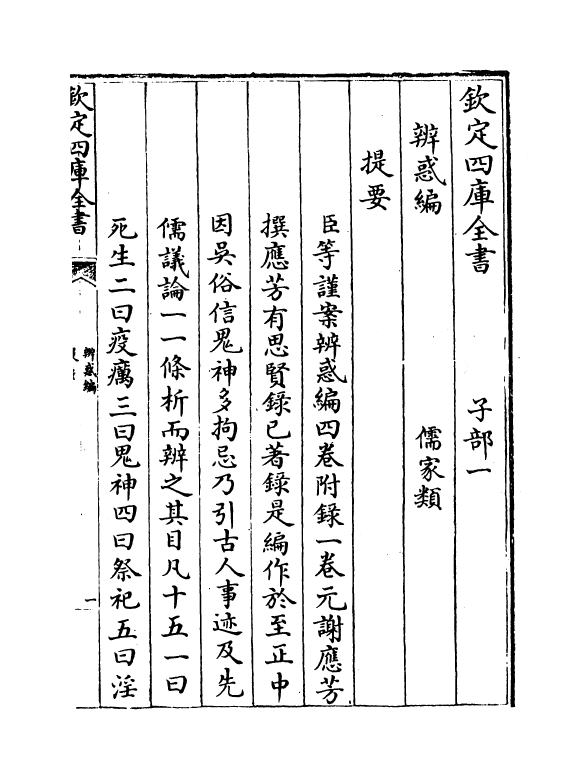 欽定四庫全書　子部一
辨惑編　儒家類
提要
臣等謹案辨惑編四卷附錄一卷元謝應芳
撰應芳有思賢錄已著錄是編作於至正中
因吳俗信鬼神多拘忌乃引古人事迹及先
儒議論一一條析而辨之其目凡十五一曰
死生二曰疫癘三曰鬼神四曰祭祀五曰淫
欽定四庫全書
辨惑編
一